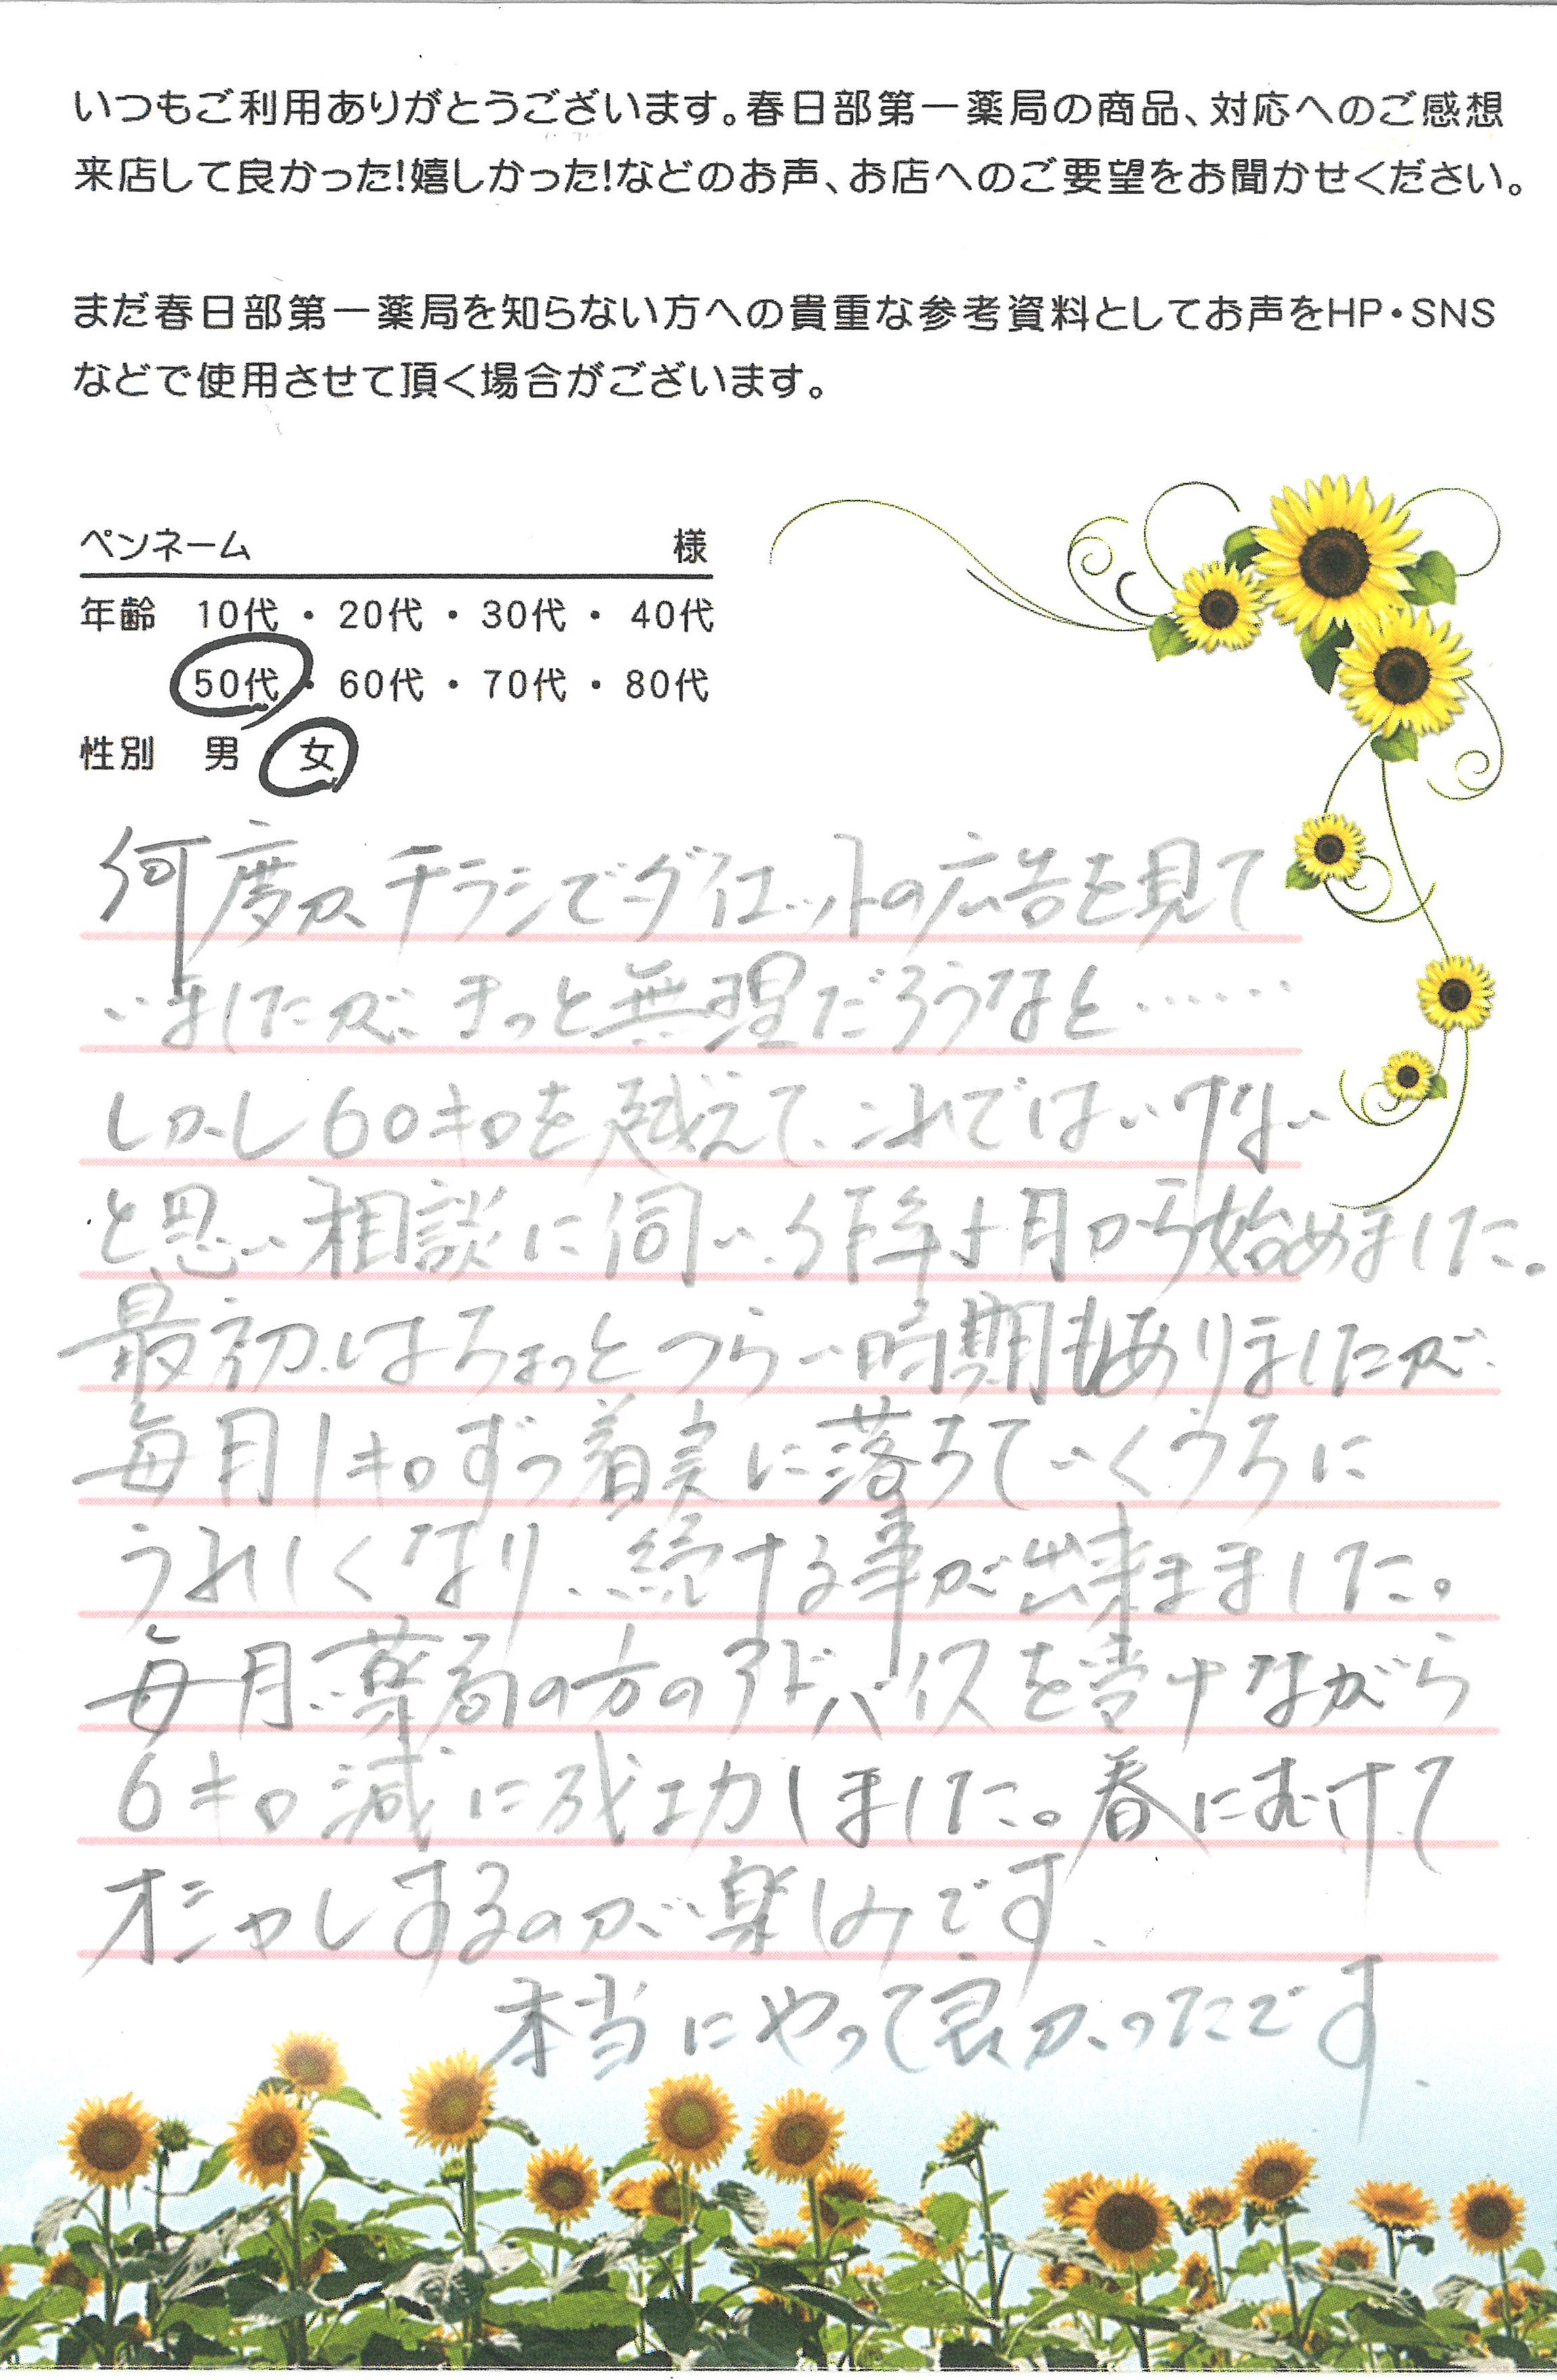 いつもご利用ありがとうございます。春日部第一薬局の商品、対応へのご感想
来店して良かった!嬉しかった!などのお声、お店へのご要望をお聞かせください。
まだ春日部第一薬局を知らない方への貴重な参考資料としてお声をHP・SNS
などで使用させて頂く場合がございます。
ペンネーム 様
年齢 10代・20代・30代・40代
50代・60代・70代・80代
性別 男 女
何度かチラシでダイエットの広告を見て
いましたが、きっと無理だろうなと……
しかし60キロを越えて、これではいけない
と思い相談に伺い、昨年十月から始めました。
最初はちょっとつらい時期もありましたが、
毎月1キロずつ着実に落ちていくうちに
うれしくなり、続ける事が出来ままました。
毎月、薬局の方のアドバイスを受けながら
6キロ減に成功しました。春にむけて
オシャレするのが楽しみです、
本当にやって良かったです、